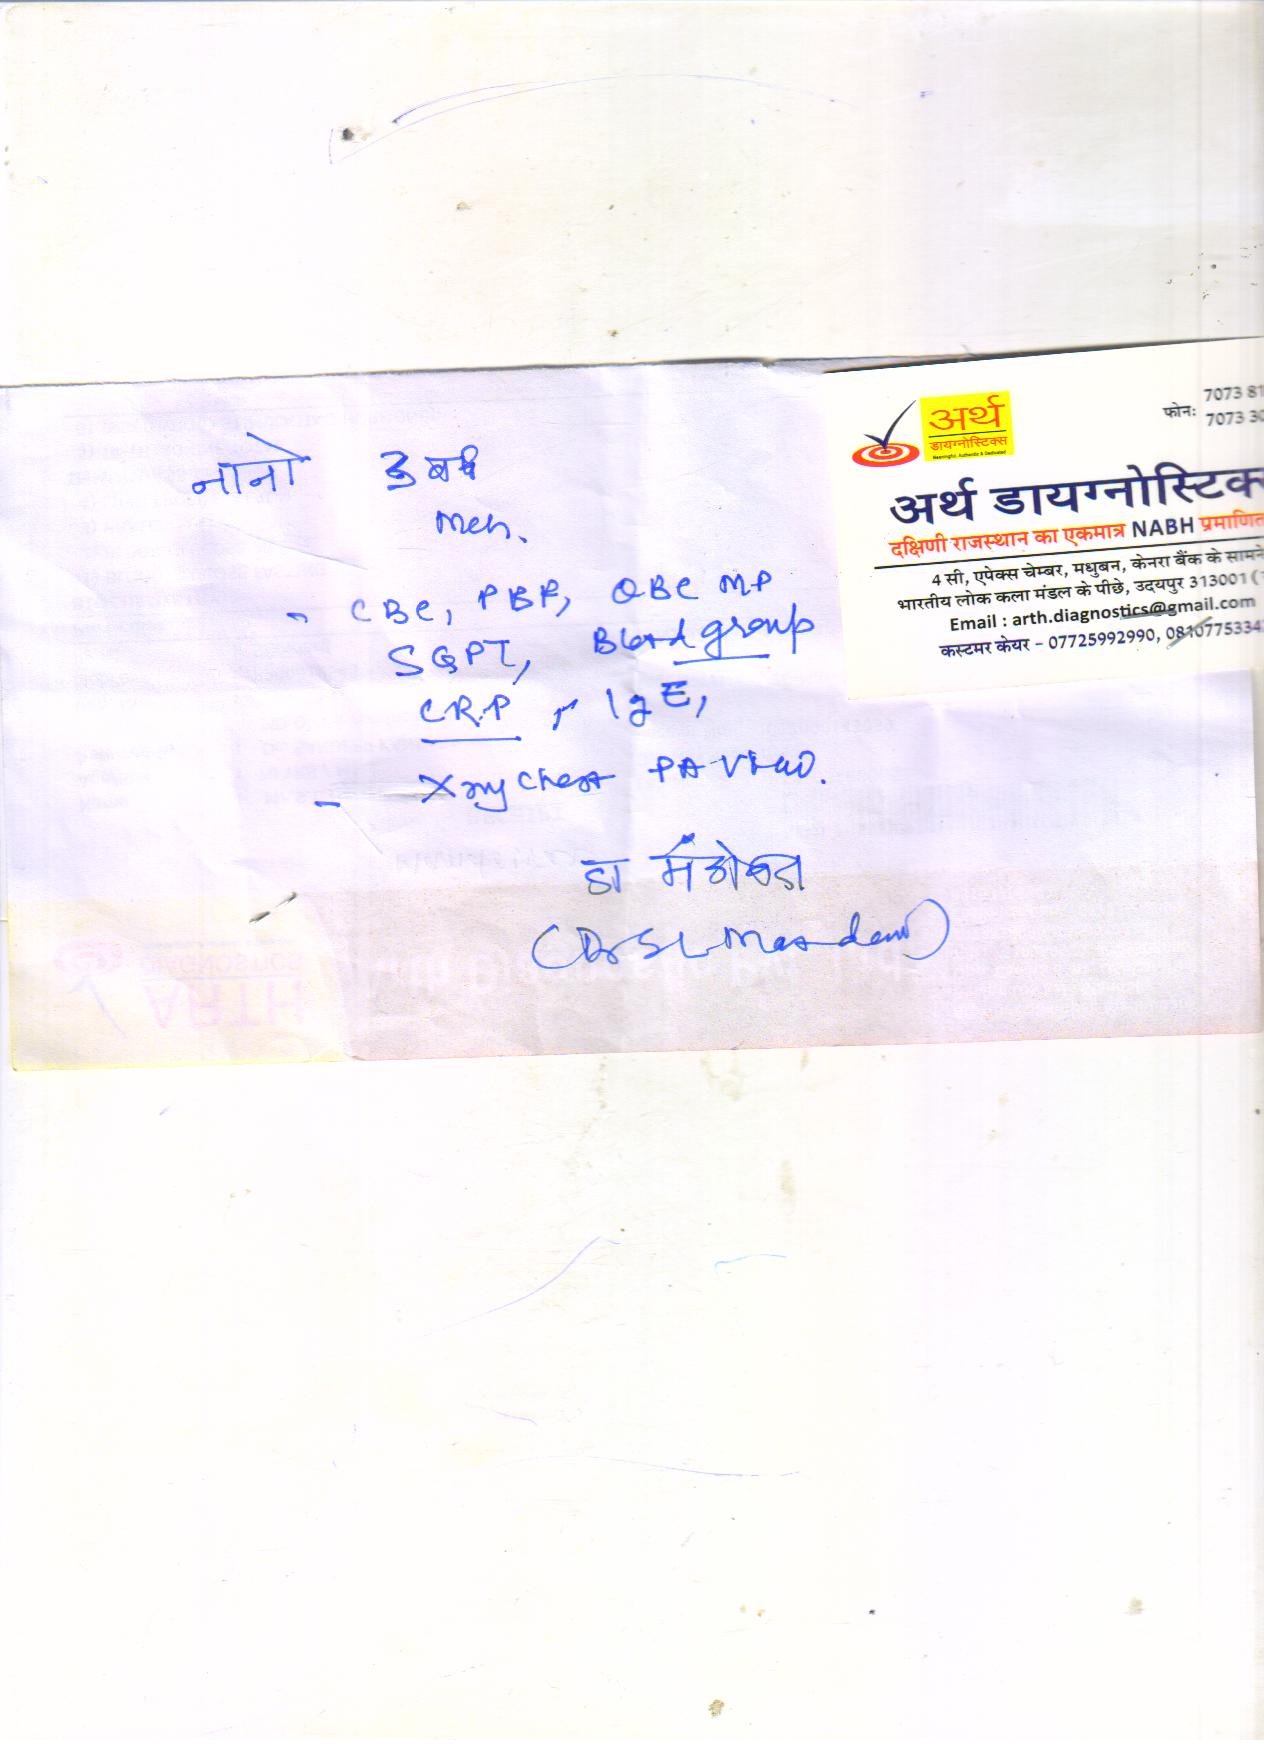 नानो 3 वर्ष
Meh.
- CBC, PBF, QBC MP
SGPT, Blood group
CRP, IgE,
- Xray Chest PA View.
डा
(Dr S L
अर्थ
डायग्नोस्टिक्स
Meaningful, Authentic & Dedicated
फोनः 7073 81
7073 30
अर्थ डायग्नोस्टिक्स
दक्षिणी राजस्थान का एकमात्र NABH प्रमाणित
4 सी, एपेक्स चेम्बर, मधुबन, केनरा बैंक के सामने
भारतीय लोक कला मंडल के पीछे, उदयपुर 313001 (
Email : arth.diagnostics@gmail.com
कस्टमर केयर – 07725992990, 0810775334